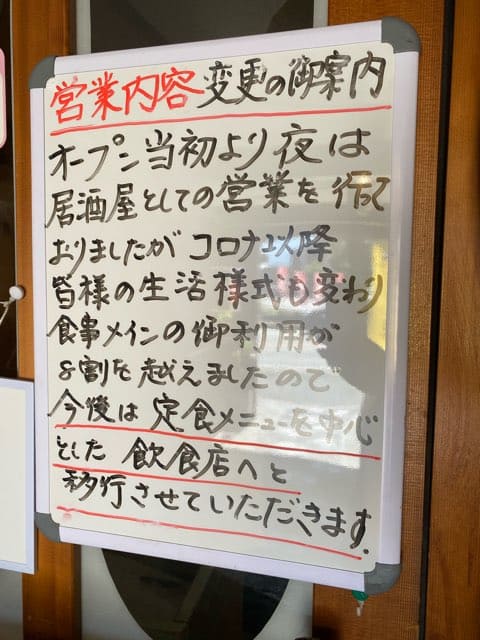 営業内容変更の御案内
オープン当初より夜は
居酒屋としての営業を行って
おりましたがコロナ以降
皆様の生活様式も変わり
食事メインの御利用が
8割を越えましたので
今後は定食メニューを中心
とした飲食店へと
移行させていただきます.